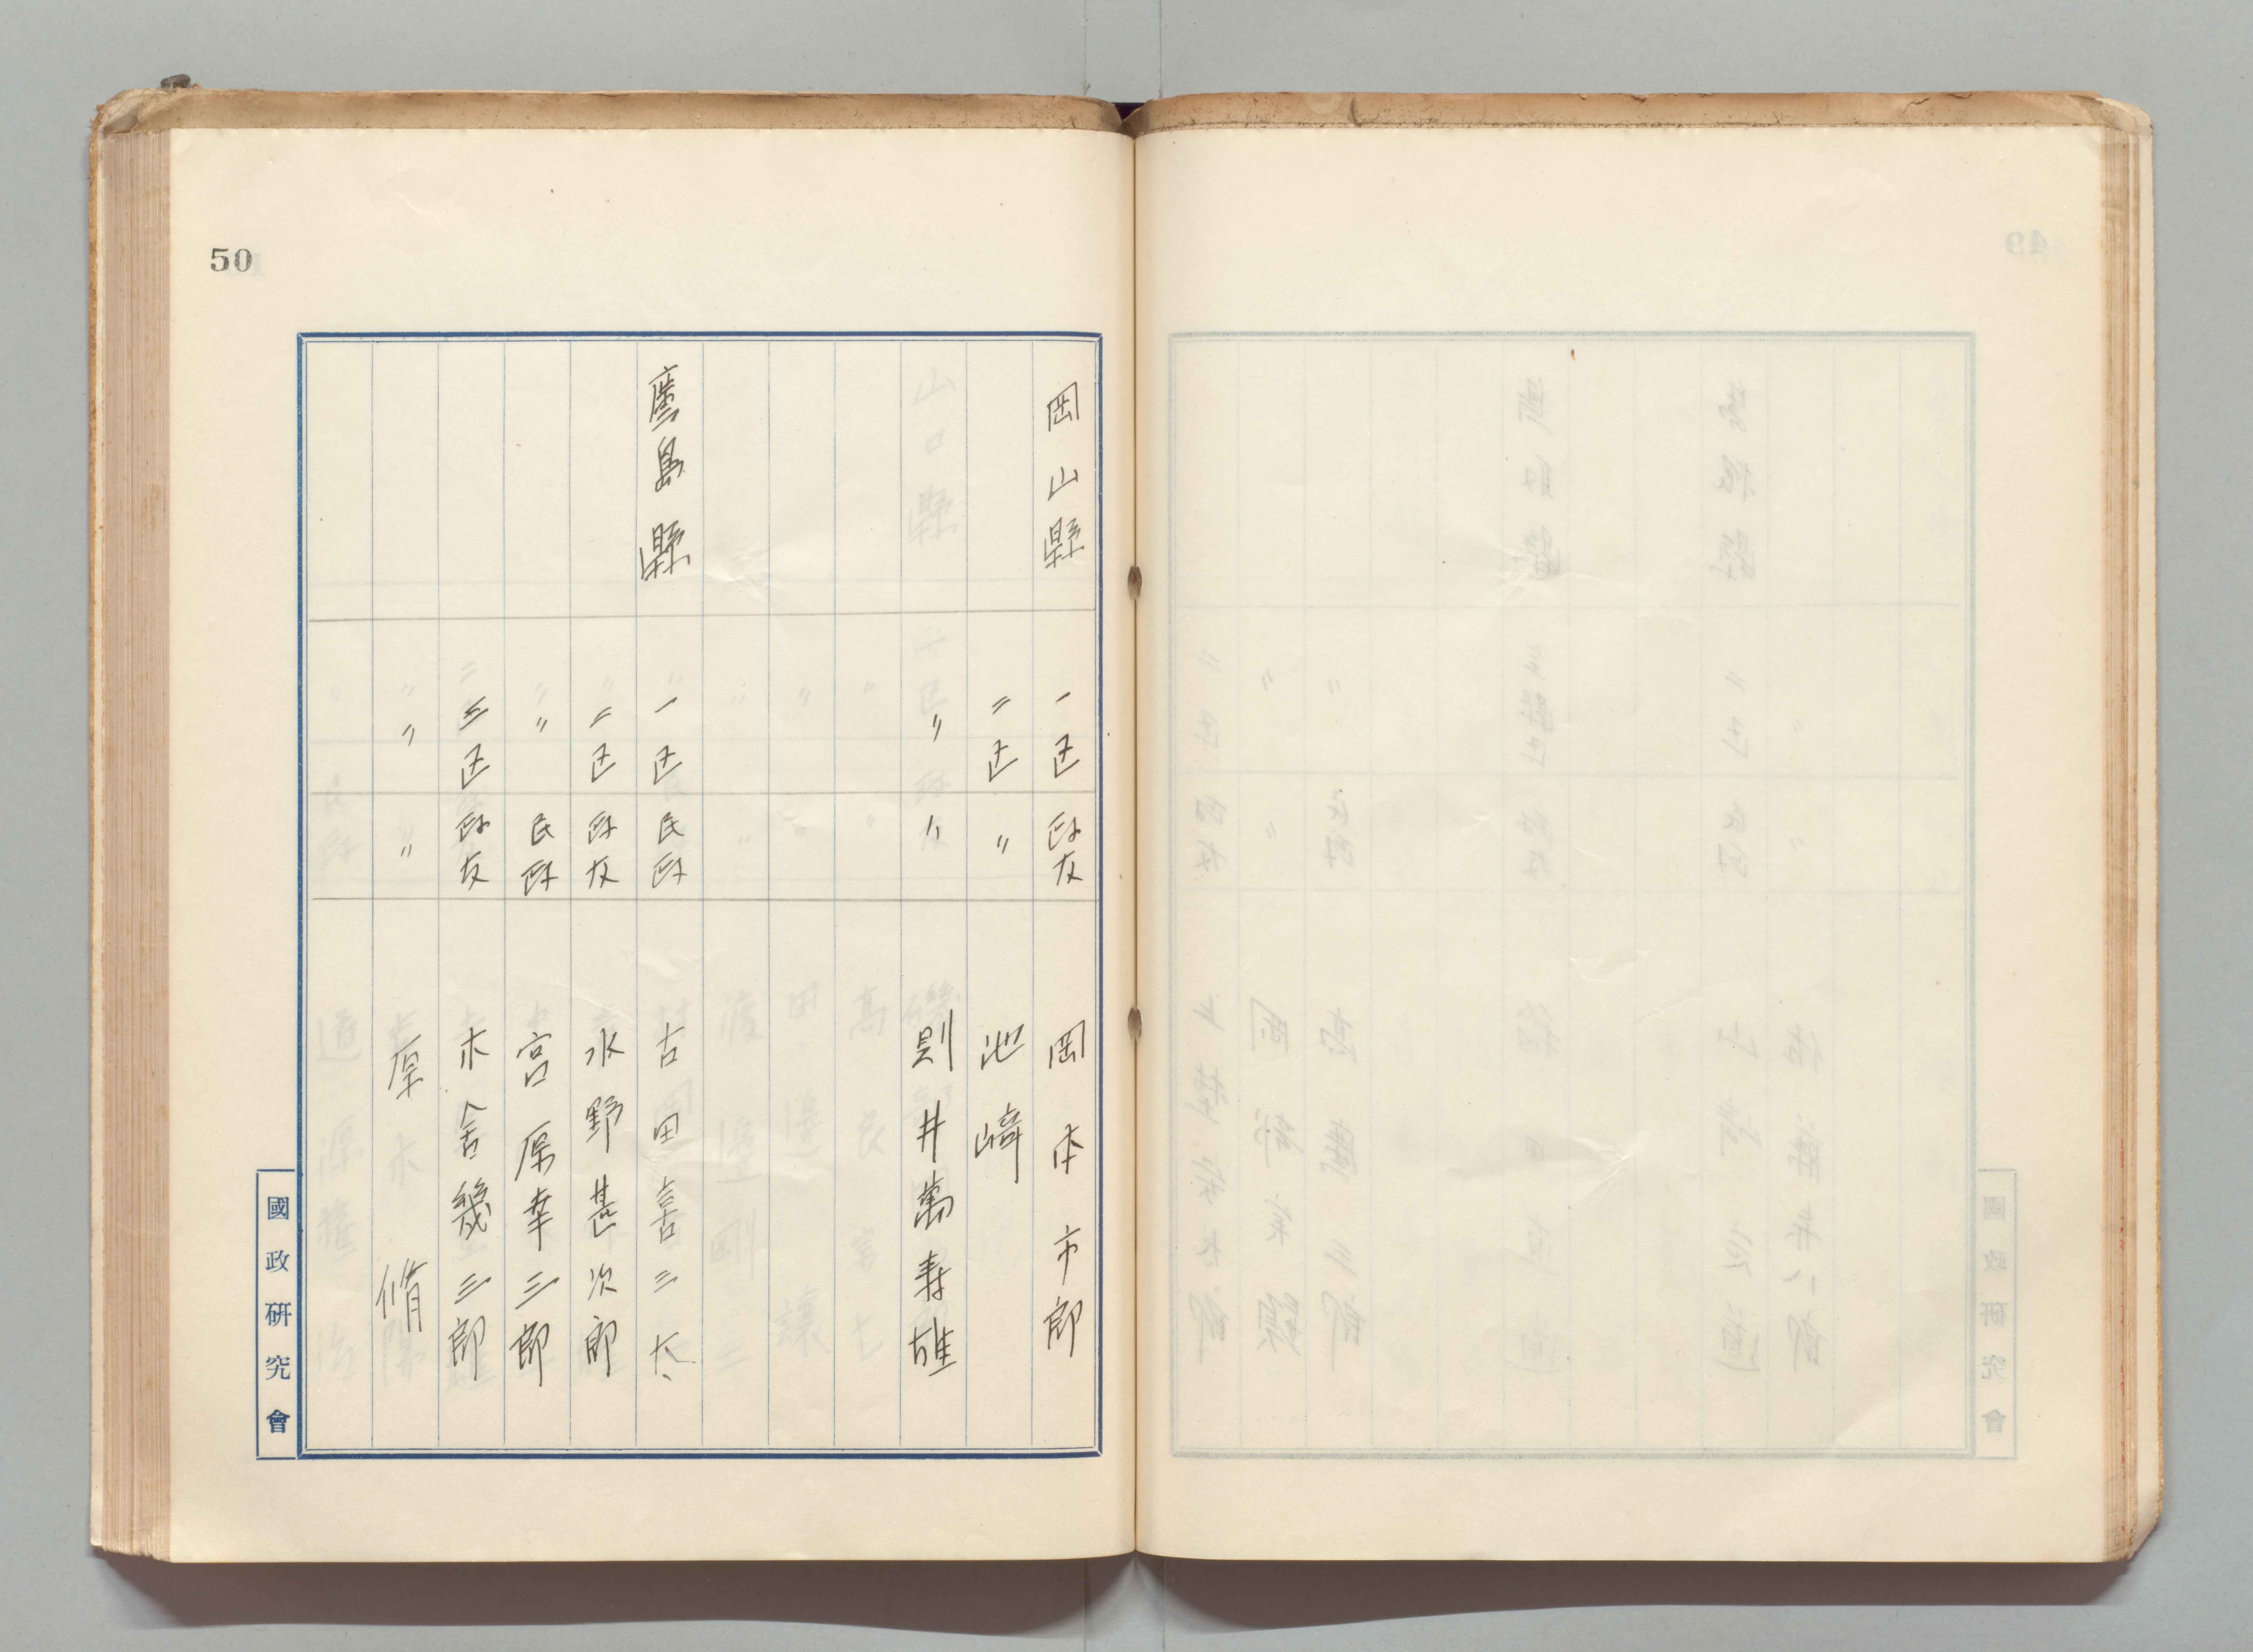 50
岡山縣 一区 政友 岡本市郎
二区 〃 池崎
〃 〃 則井萬寿雄
廣島縣 一区 民政 古田喜三太
二区 政友 水野甚次郎
〃 民政 宮原幸三郎
三区 政友 木舍幾三郎
〃 〃 原 脩
國政研究會